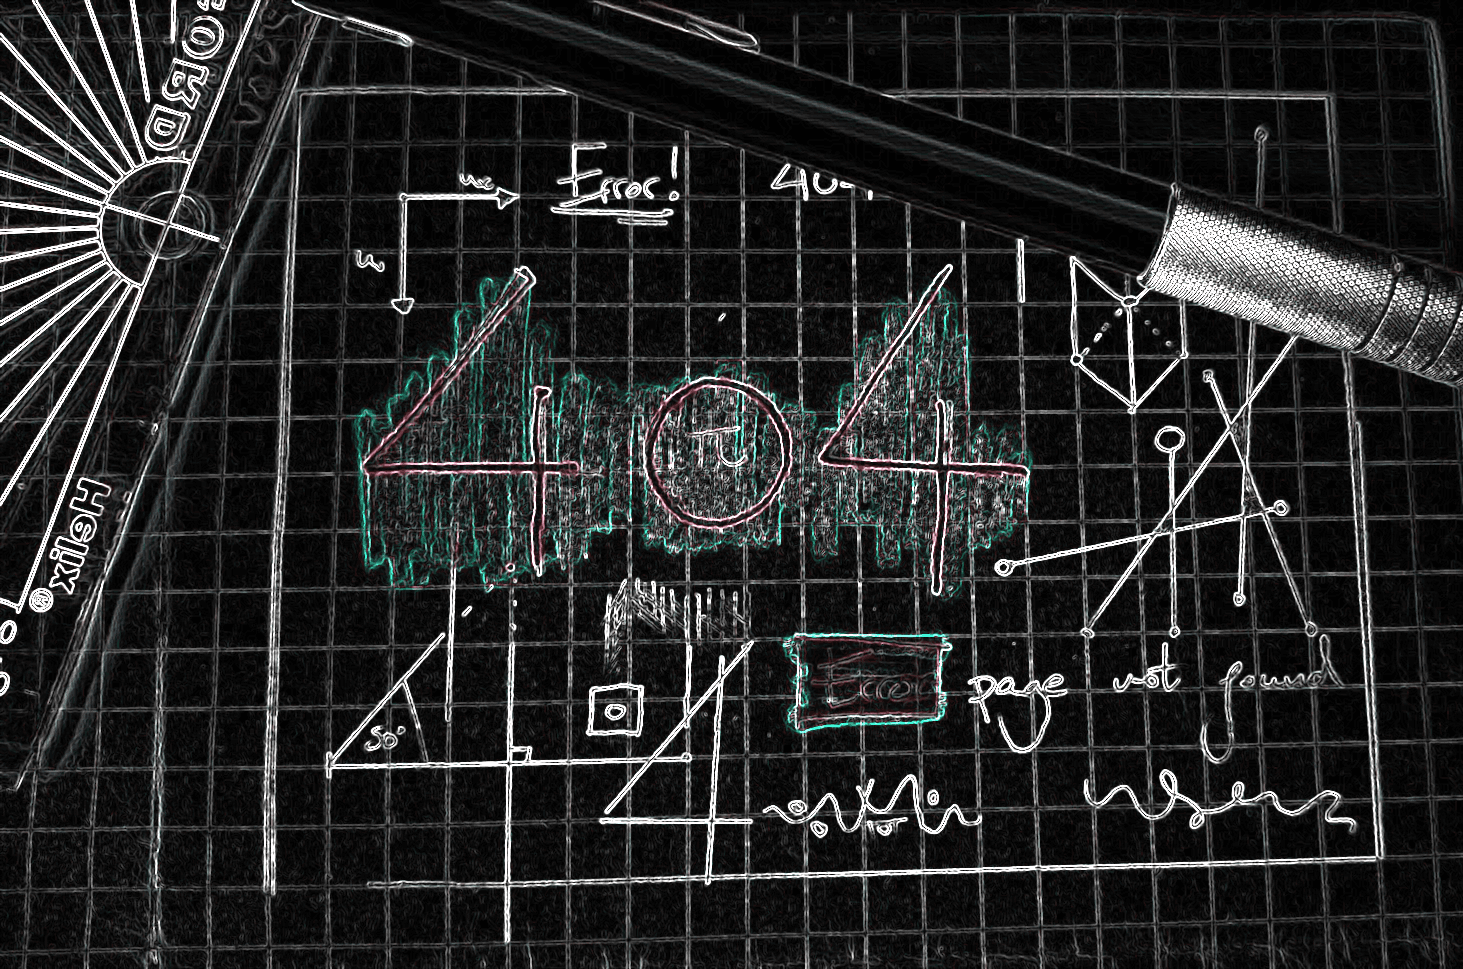 OXFORD
Helix®
Error! 404
4 π 4
50°
Error page not found